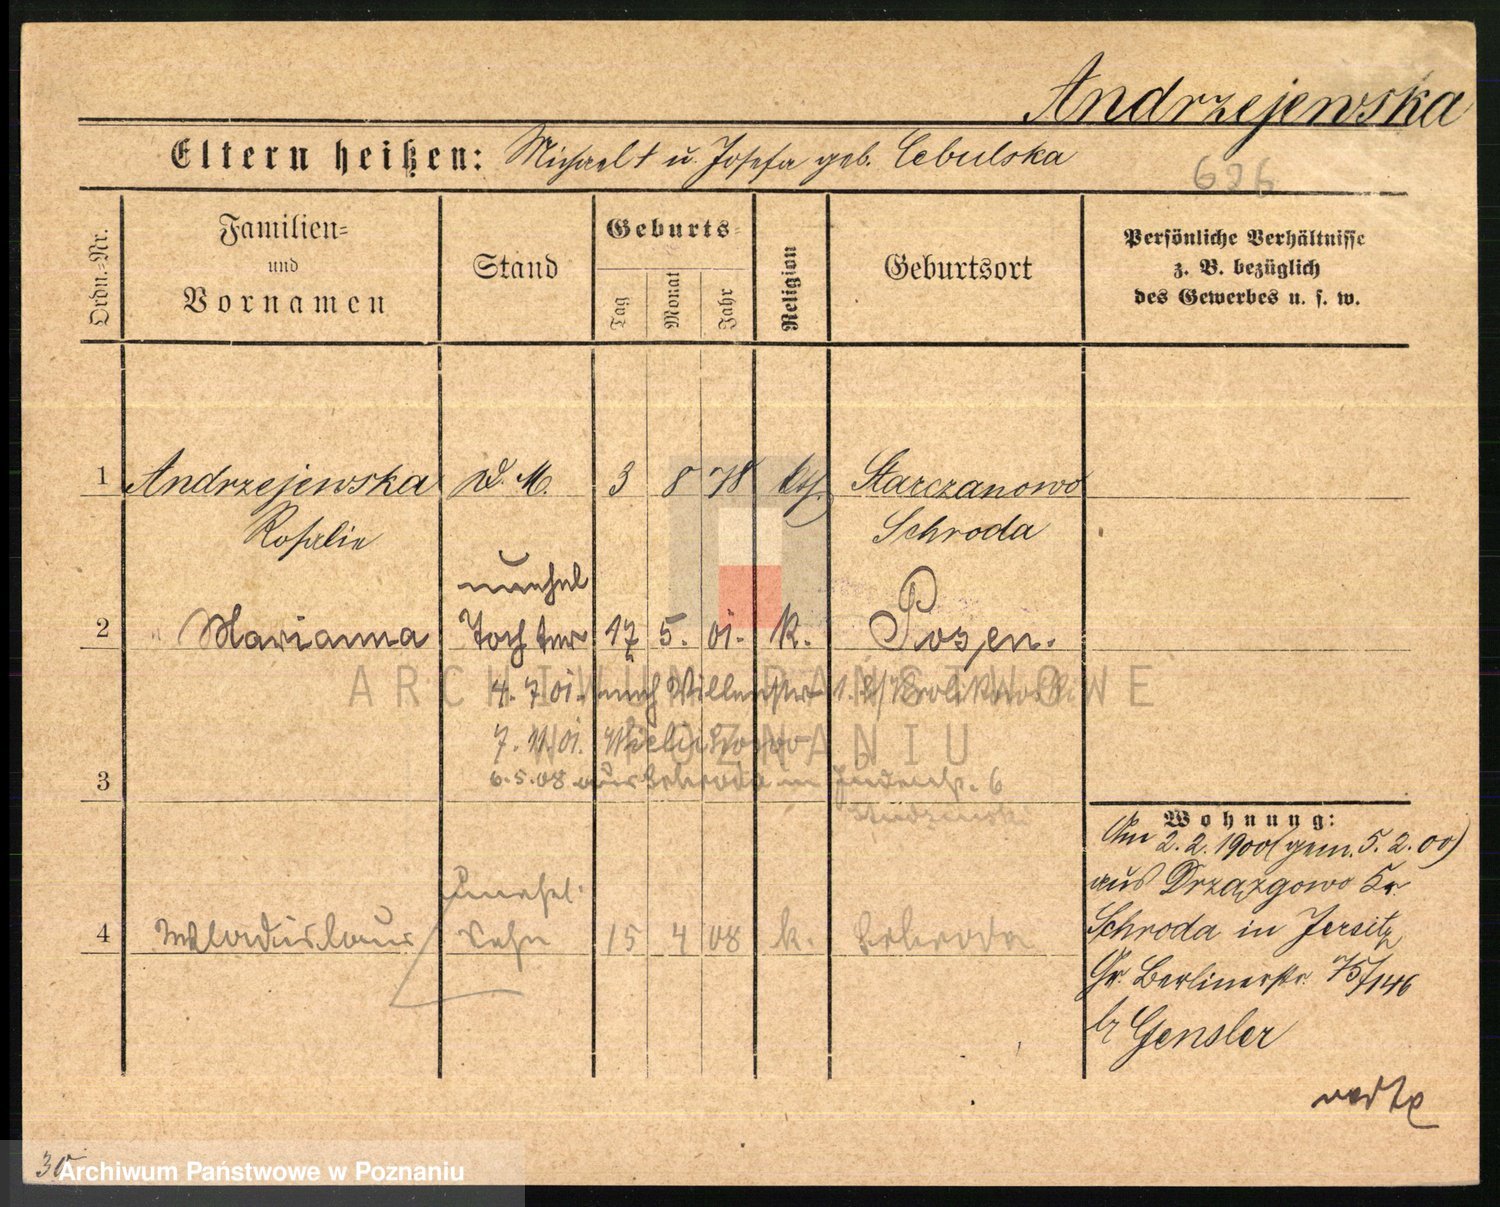 Andrzejewska
Eltern heißen: Michael † u. Josefa geb. Cebulska
626
Ordn.-Nr.
Familien=
und
Vornamen
Stand
Geburts=
Tag
Monat
Jahr
Religion
Geburtsort
Persönliche Verhältnisse
z. B. bezüglich
des Gewerbes u. s. w.
1 Andrzejewska D. M. 3 8 78 kth. Starczanowo
Rosalie Schroda
unehel
2 Marianna Tochter 17 5. 01. K. Posen.
4. 7. 01. nach
7. 11. 01.
3 6. 5. 08 aus Schroda in 6
Wohnung:
Am 2. 2. 1900 (gem. 5. 2. 00)
aus Drzązgowo Kr.
Schroda in Jersitz
Gr. Berlinerstr. 75/146
b/ Gensler
unehel.
4 Wladislaus Sohn 15 4 08 k. Schroda
30
ARCHIWUM PAŃSTWOWE
W POZNANIU
Archiwum Państwowe w Poznaniu